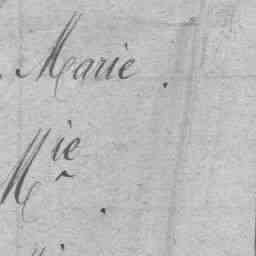 Marie.
Mie.